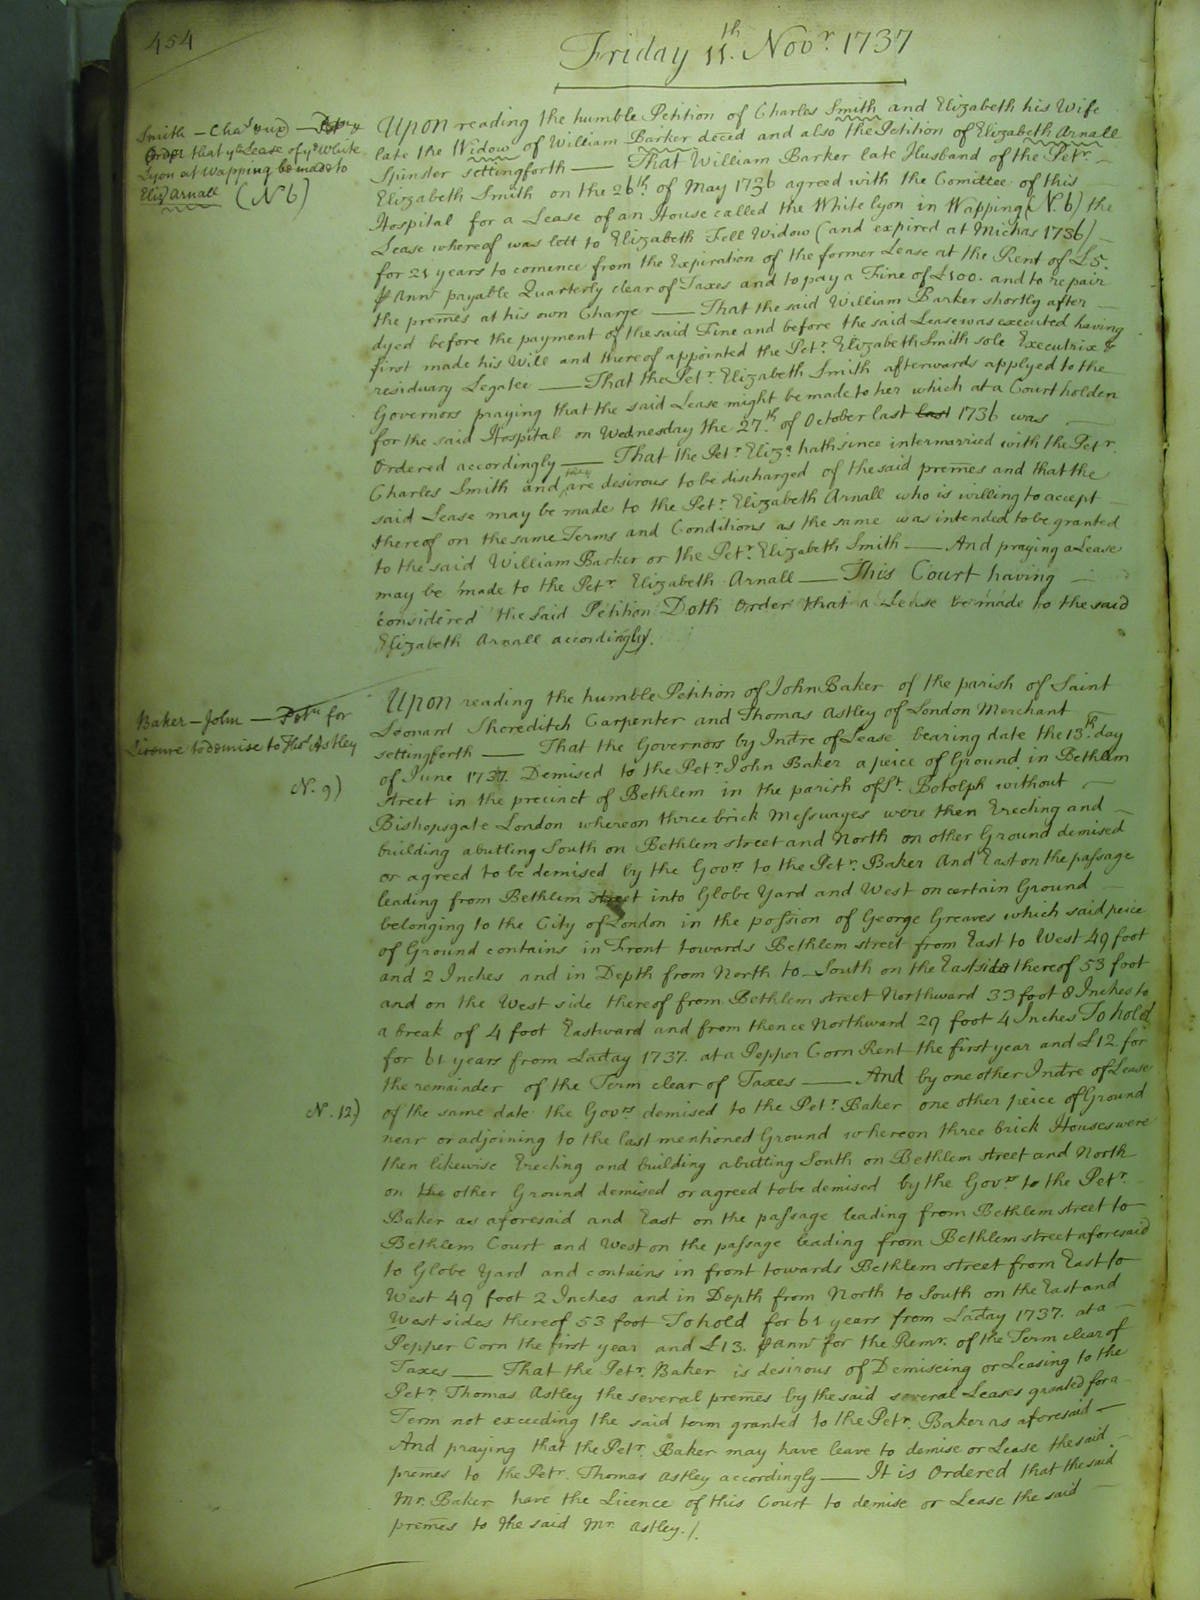 454
Friday 11th. Novr. 1737
Smith - Chas & ux) -
Order that ye Lease of ye White
Lyon at Wapping be made to
Eliz Arnall (N 6)
Upon reading the humble Petition of Charles Smith and Elizabeth his Wife
late the Widow of William Barker deced and also the Petition of Elizabeth Arnall
Spinster settingforth — That William Barker late Husband of the Petr.
Elizabeth Smith on the 26th of May 1736 agreed with the Comittee of this
Hospital for a Lease of an House called the White lyon in Wapping (N. 6) the
Lease whereof was lett to Elizabeth Fell Widow (and expired at Michas 1736)
for 21 years to comence from the Expiration of the former Lease at the Rent of £5.
⅌ Annm payable Quarterly clear of Taxes and to pay a Fine of £100. and to repair
the premes at his own Charge — That the said William Barker shortly after
dyed before the payment of the said Fine and before the said Lease was executed having
first made his Will and thereof appointed the Petr. Elizabeth Smith sole Executrix &
residuary Legatee — That the Petr. Elizabeth Smith afterwards applyed to the
Governors praying that the said Lease might be made to her which at a Court holden
for the said Hospital on Wednesday the 27th. of October last last 1736 was
Ordered accordingly — That the Petr. Eliza hath since intermarried with the Petr.
Charles Smith and they are desirous to be discharged of the said premes and that the
said Lease may be made to the Petr. Elizabeth Arnall who is willing to accept
thereof on the same Terms and Conditions as the same was intended to be granted
to the said William Barker or the Petr. Elizabeth Smith — And praying a Lease
may be made to the Petr. Elizabeth Arnall — This Court having
considered the said Petition Doth Order that a Lease be made to the said
Elizabeth Arnall accordingly.
Baker - John - Petn for
Licence to demise to Thos. Astley
N. 9)
Upon reading the humble Petition of John Baker of the parish of Saint
Leonard Shoreditch Carpenter and Thomas Astley of London Merchant
settingforth — That the Governors by Indre of Lease bearing date the 13th. day
of June 1737. Demised to the Petr. John Baker a peice of Ground in Bethlem
street in the precinct of Bethlem in the parish of St. Botolph without
Bishopsgate London whereon three brick Messuages were then Erecting and
building abutting South on Bethlem street and North on other Ground demised
or agreed to be demised by the Govrs to the Petr. Baker And East on the passage
leading from Bethlem street into Globe Yard and West on certain Ground
belonging to the City of London in the possion of George Greaves which said peice
of Ground contains in Front towards Bethlem street from East to West 49 foot
and 2 Inches and in Depth from North to South on the East side thereof 53 foot
and on the West side thereof from Bethlem street Northward 33 foot 8 Inches to
a break of 4 foot Eastward and from thence Northward 29 foot 4 Inches To hold
for 61 years from Laday 1737. at a Pepper Corn Rent the first year and £12 for
the remainder of the Term clear of Taxes — And by one other Indre of Lease
N. 12)
of the same date the Govrs demised to the Petr. Baker one other peice of Ground
near or adjoining to the last mentioned Ground whereon three brick Houses were
then likewise Erecting and building abutting South on Bethlem street and North
on the other Ground demised or agreed to be demised by the Govrs to the Petr.
Baker as aforesaid and East on the passage leading from Bethlem street to
Bethlem Court and West on the passage leading from Bethlem street aforesaid
to Globe Yard and contains in front towards Bethlem street from East to
West 49 foot 2 Inches and in Depth from North to South on the East and
West sides thereof 53 foot To hold for 61 years from Laday 1737. at a
Pepper Corn the first year and £13. ⅌ Annm for the Remr. of the Term clear of
Taxes — That the Petr. Baker is desirous of Demiseing or Leasing to the
Petr. Thomas Astley the several premes by the said several Leases granted for a
Term not exceeding the said term granted to the Petr. Baker as aforesaid —
And praying that the Petr. Baker may have leave to demise or Lease the said
premes to the Petr. Thomas Astley accordingly — It is Ordered that the said
Mr. Baker have the Licence of this Court to demise or Lease the said
premes to the said Mr. Astley./.